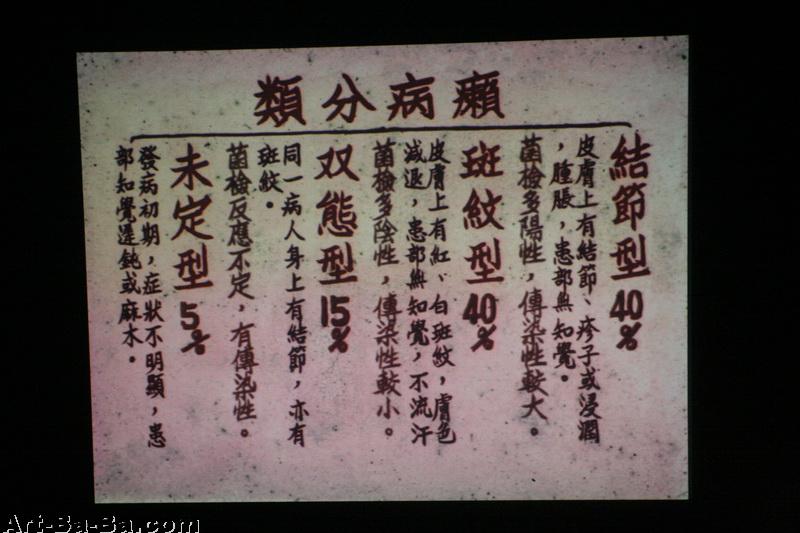 癩病分類
結節型40%
皮膚上有結節、疹子或浸潤
，腫脹，患部無知覺。
菌檢多陽性，傳染性較大。
斑紋型40%
皮膚上有紅、白斑紋，膚色
減退，患部無知覺，不流汗
菌檢多陰性，傳染性較小。
双態型15%
同一病人身上有結節，亦有
斑紋。
菌檢反應不定，有傳染性。
未定型5%
發病初期，症狀不明顯，患
部知覺遲鈍或麻木。
Art-Ba-Ba.com